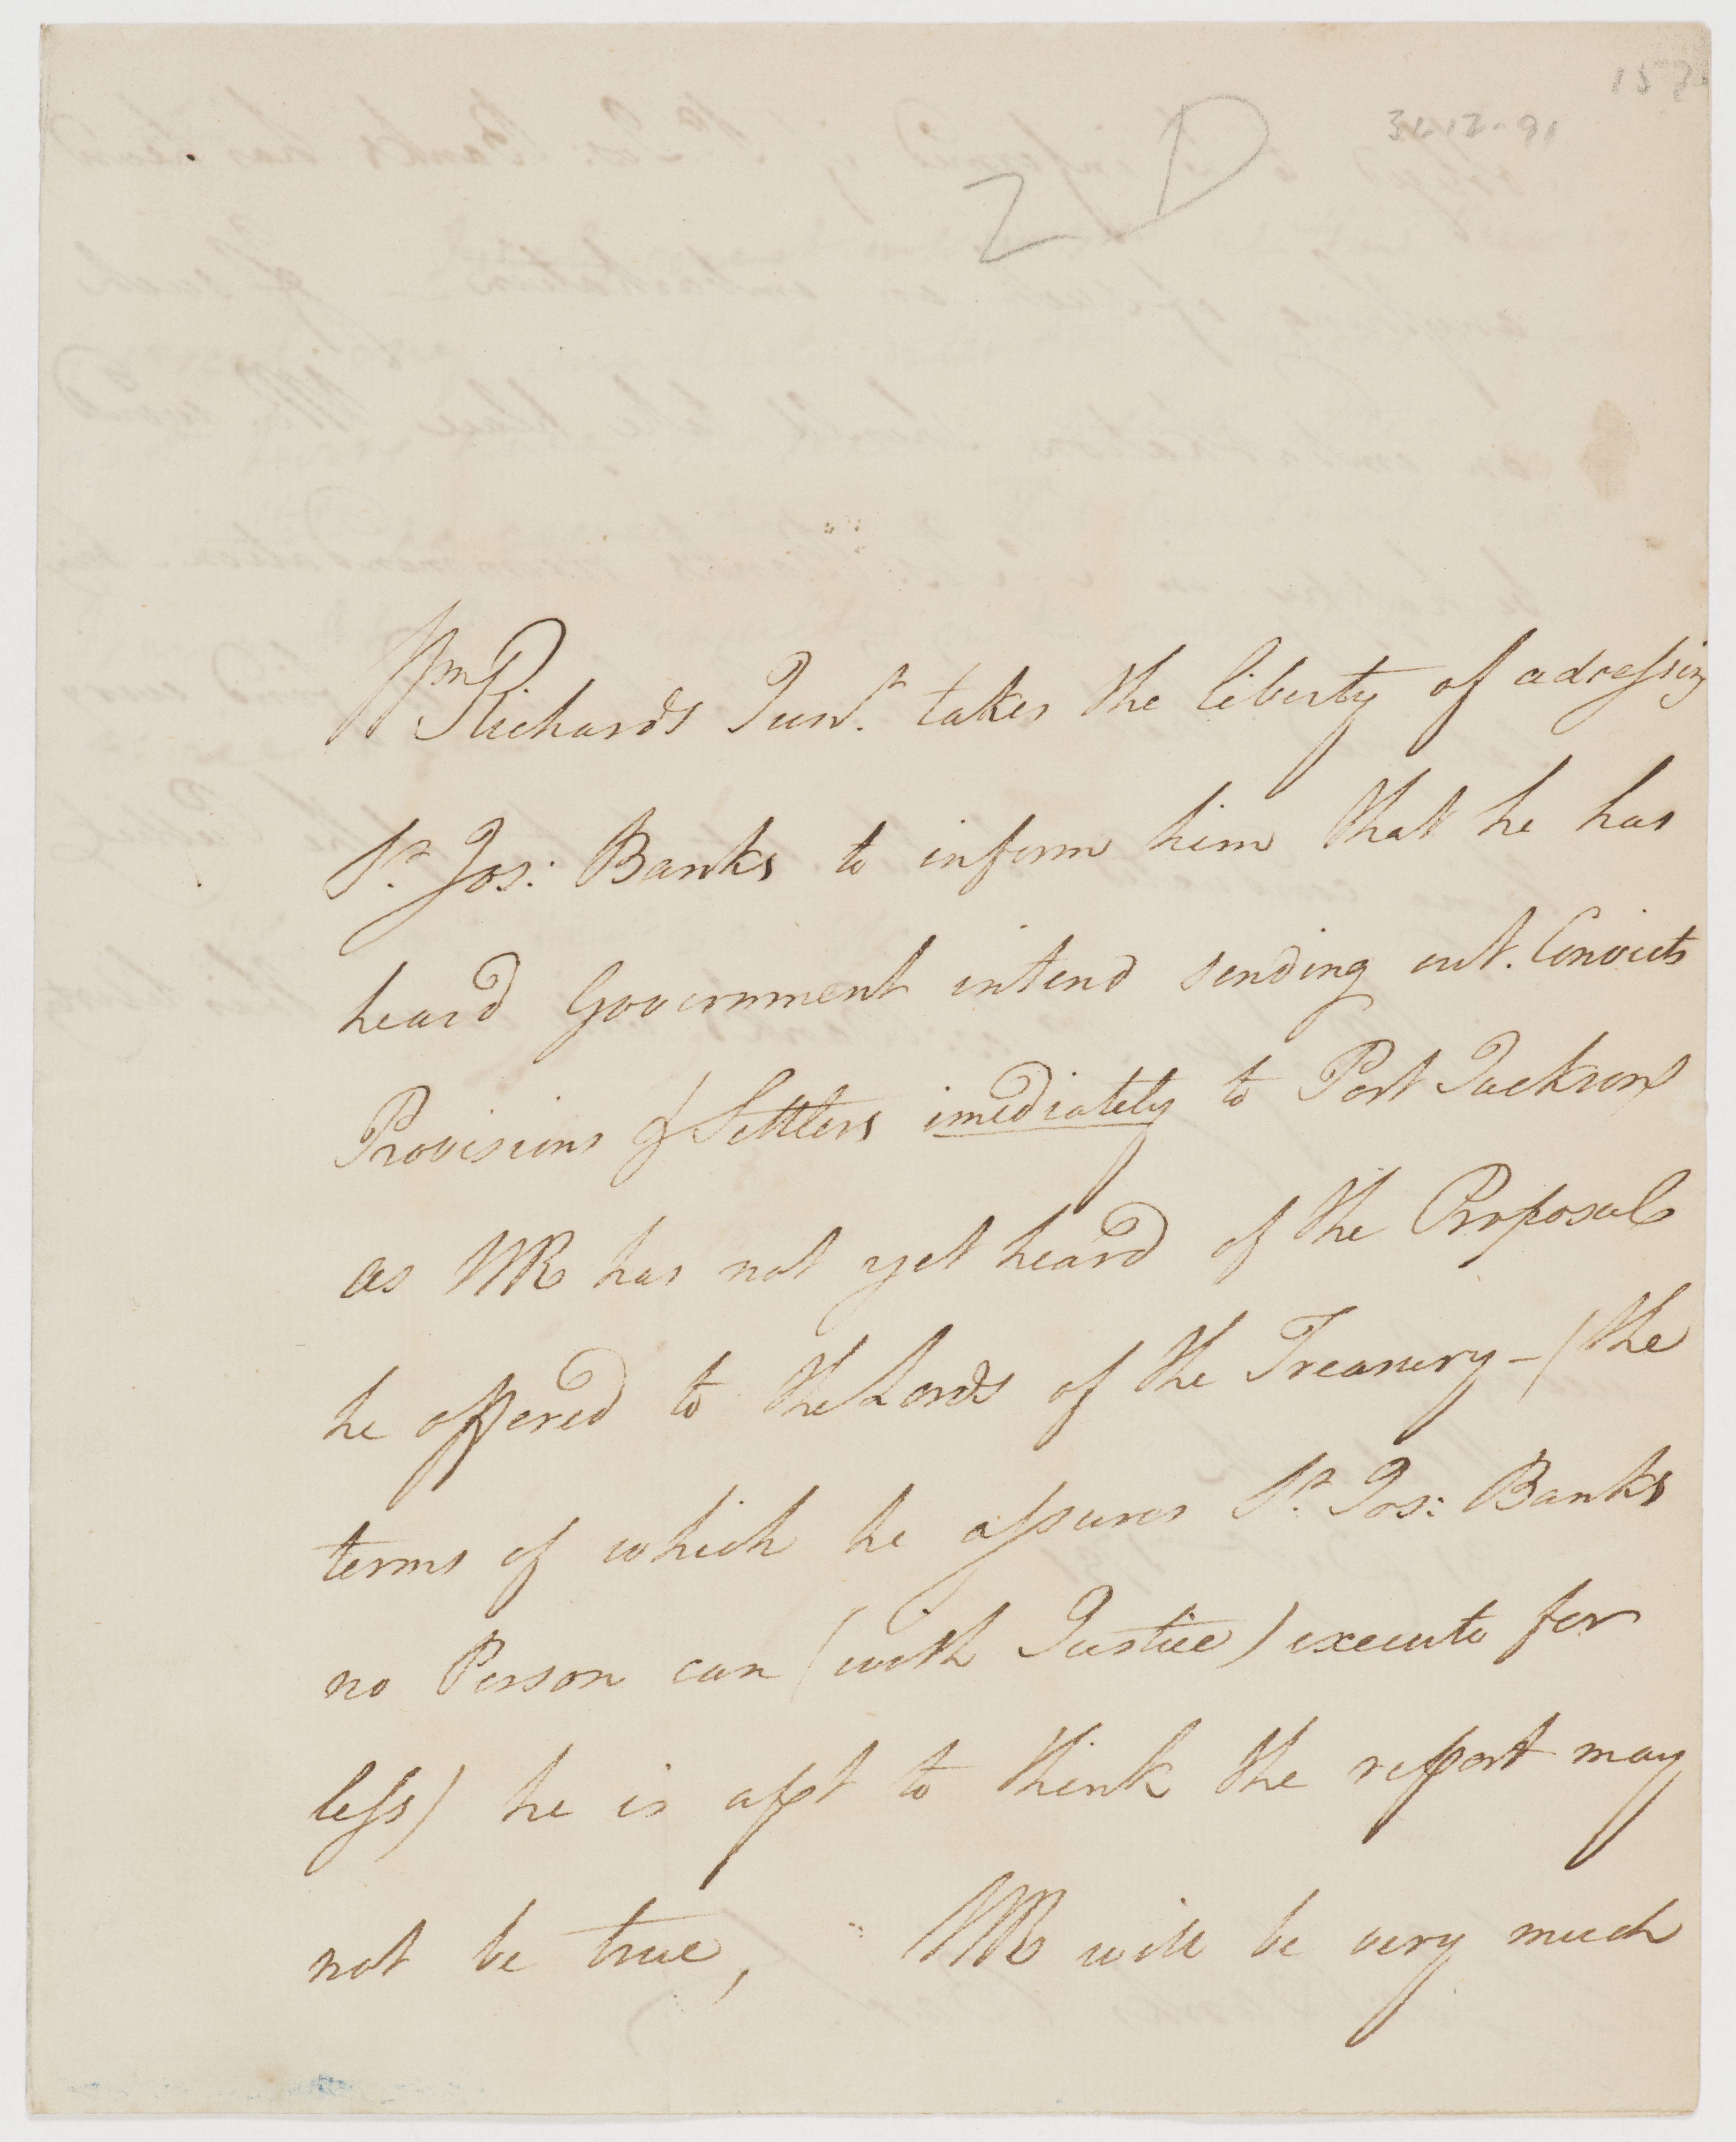 31-12-91
2 D
Wm Richards Junr. takes the liberty of adressing
Sr. Jos: Banks to inform him that he has
heard Government intend sending out. Convicts
Provisions & Settlers imediately to Port Jackson
as WR has not yet heard of the Proposals
he offered to the Lords of the Treasury - (the
terms of which he assures Sr. Jos: Banks
no Person can (with Justice) execute for
less) he is apt to think the report may
not be true, WR will be very much